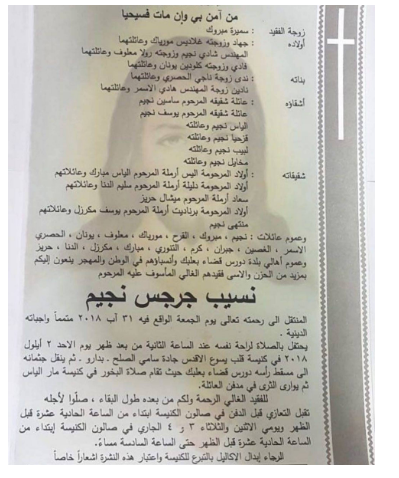 من آمن بي وإن مات فسيحيا
زوجة الفقيد : سميرة مبروك
أولاده : جهاد وزوجته غلاديس مورياك وعائلتهما
المهندس شادي نجيم وزوجته رولا معلوف وعائلتهما
فادي وزوجته كلودين يونان وعائلتهما
بناته : ندى زوجة ناجي الحصري وعائلتهما
نادين زوجة المهندس هادي الأسمر وعائلتهما
أشقاؤه : عائلة شقيقه المرحوم ساسين نجيم
عائلة شقيقه المرحوم يوسف نجيم
الياس نجيم وعائلته
قزحيا نجيم وعائلته
لبيب نجيم وعائلته
مخايل نجيم وعائلته
شقيقاته : أولاد المرحومة اليس أرملة المرحوم الياس مبارك وعائلاتهم
أولاد المرحومة دليلة أرملة المرحوم سليم الدنا وعائلاتهم
سعاد أرملة المرحوم ميشال حريز
أولاد المرحومة برناديت أرملة المرحوم يوسف مكرزل وعائلاتهم
منتهى نجيم
وعموم عائلات : نجيم ، مبروك ، القرح ، مورياك ، معلوف ، يونان ، الحصري
الأسمر ، الغصين ، جبران ، كرم ، التنوري ، مبارك ، مكرزل ، الدنا ، حريز
وعموم أهالي بلدة دورس قضاء بعلبك وأنسباؤهم في الوطن والمهجر ينعون إليكم
بمزيد من الحزن والأسى فقيدهم الغالي المأسوف عليه المرحوم
نسيب جرجس نجيم
المنتقل الى رحمته تعالى يوم الجمعة الواقع فيه ٣١ آب ٢٠١٨ متمماً واجباته
الدينية .
يحتفل بالصلاة لراحة نفسه عند الساعة الثانية من بعد ظهر يوم الاحد ٢ أيلول
٢٠١٨ في كنيسة قلب يسوع الأقدس جادة سامي الصلح ـ بدارو . ثم ينقل جثمانه
الى مسقط رأسه دورس قضاء بعلبك حيث تقام صلاة البخور في كنيسة مار الياس
ثم يوارى الثرى في مدفن العائلة.
للفقيد الغالي الرحمة ولكم من بعده طول البقاء ، صلّوا لأجله
تقبل التعازي قبل الدفن في صالون الكنيسة ابتداء من الساعة الحادية عشرة قبل
الظهر ويومي الاثنين والثلاثاء ٣ و ٤ الجاري في صالون الكنيسة إبتداء من
الساعة الحادية عشرة قبل الظهر حتى الساعة السادسة مساءً.
الرجاء إبدال الأكاليل بالتبرع للكنيسة واعتبار هذه النشرة اشعاراً خاصاً